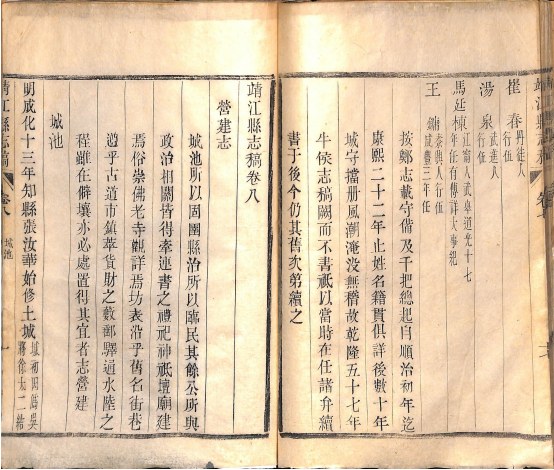 靖江縣志稿 卷七
崔春 丹徒人行伍
湯泉 武進人行伍
馬廷棟 江甯人武舉道光十七年任有傳詳大事紀
王鏞 泰興人行伍咸豐三年任
按鄭志載守備及千把總起自順治初年迄
康熙二十二年止姓名籍貫俱詳後數十年
城守擋册風潮淹没無稽故乾隆五十七年
牛侯志稿闕而不書祗以當時在任諸弁續
書于後今仍其舊次第續之
靖江縣志稿卷八
營建志
城池所以固圉縣治所以臨民其餘公所與
政治相關皆得牽連書之禮祀神祗壇廟建
焉俗崇佛老寺觀詳焉坊表沿乎舊名街巷
遵乎古道市鎮萃貨財之藪郵驛逼水陸之
程雖在僻壤亦必處置得其宜者志營建
城池
明成化十三年知縣張汝華始修土城 城初因爲吳將徐太二結
靖江縣志稿 卷八 城池